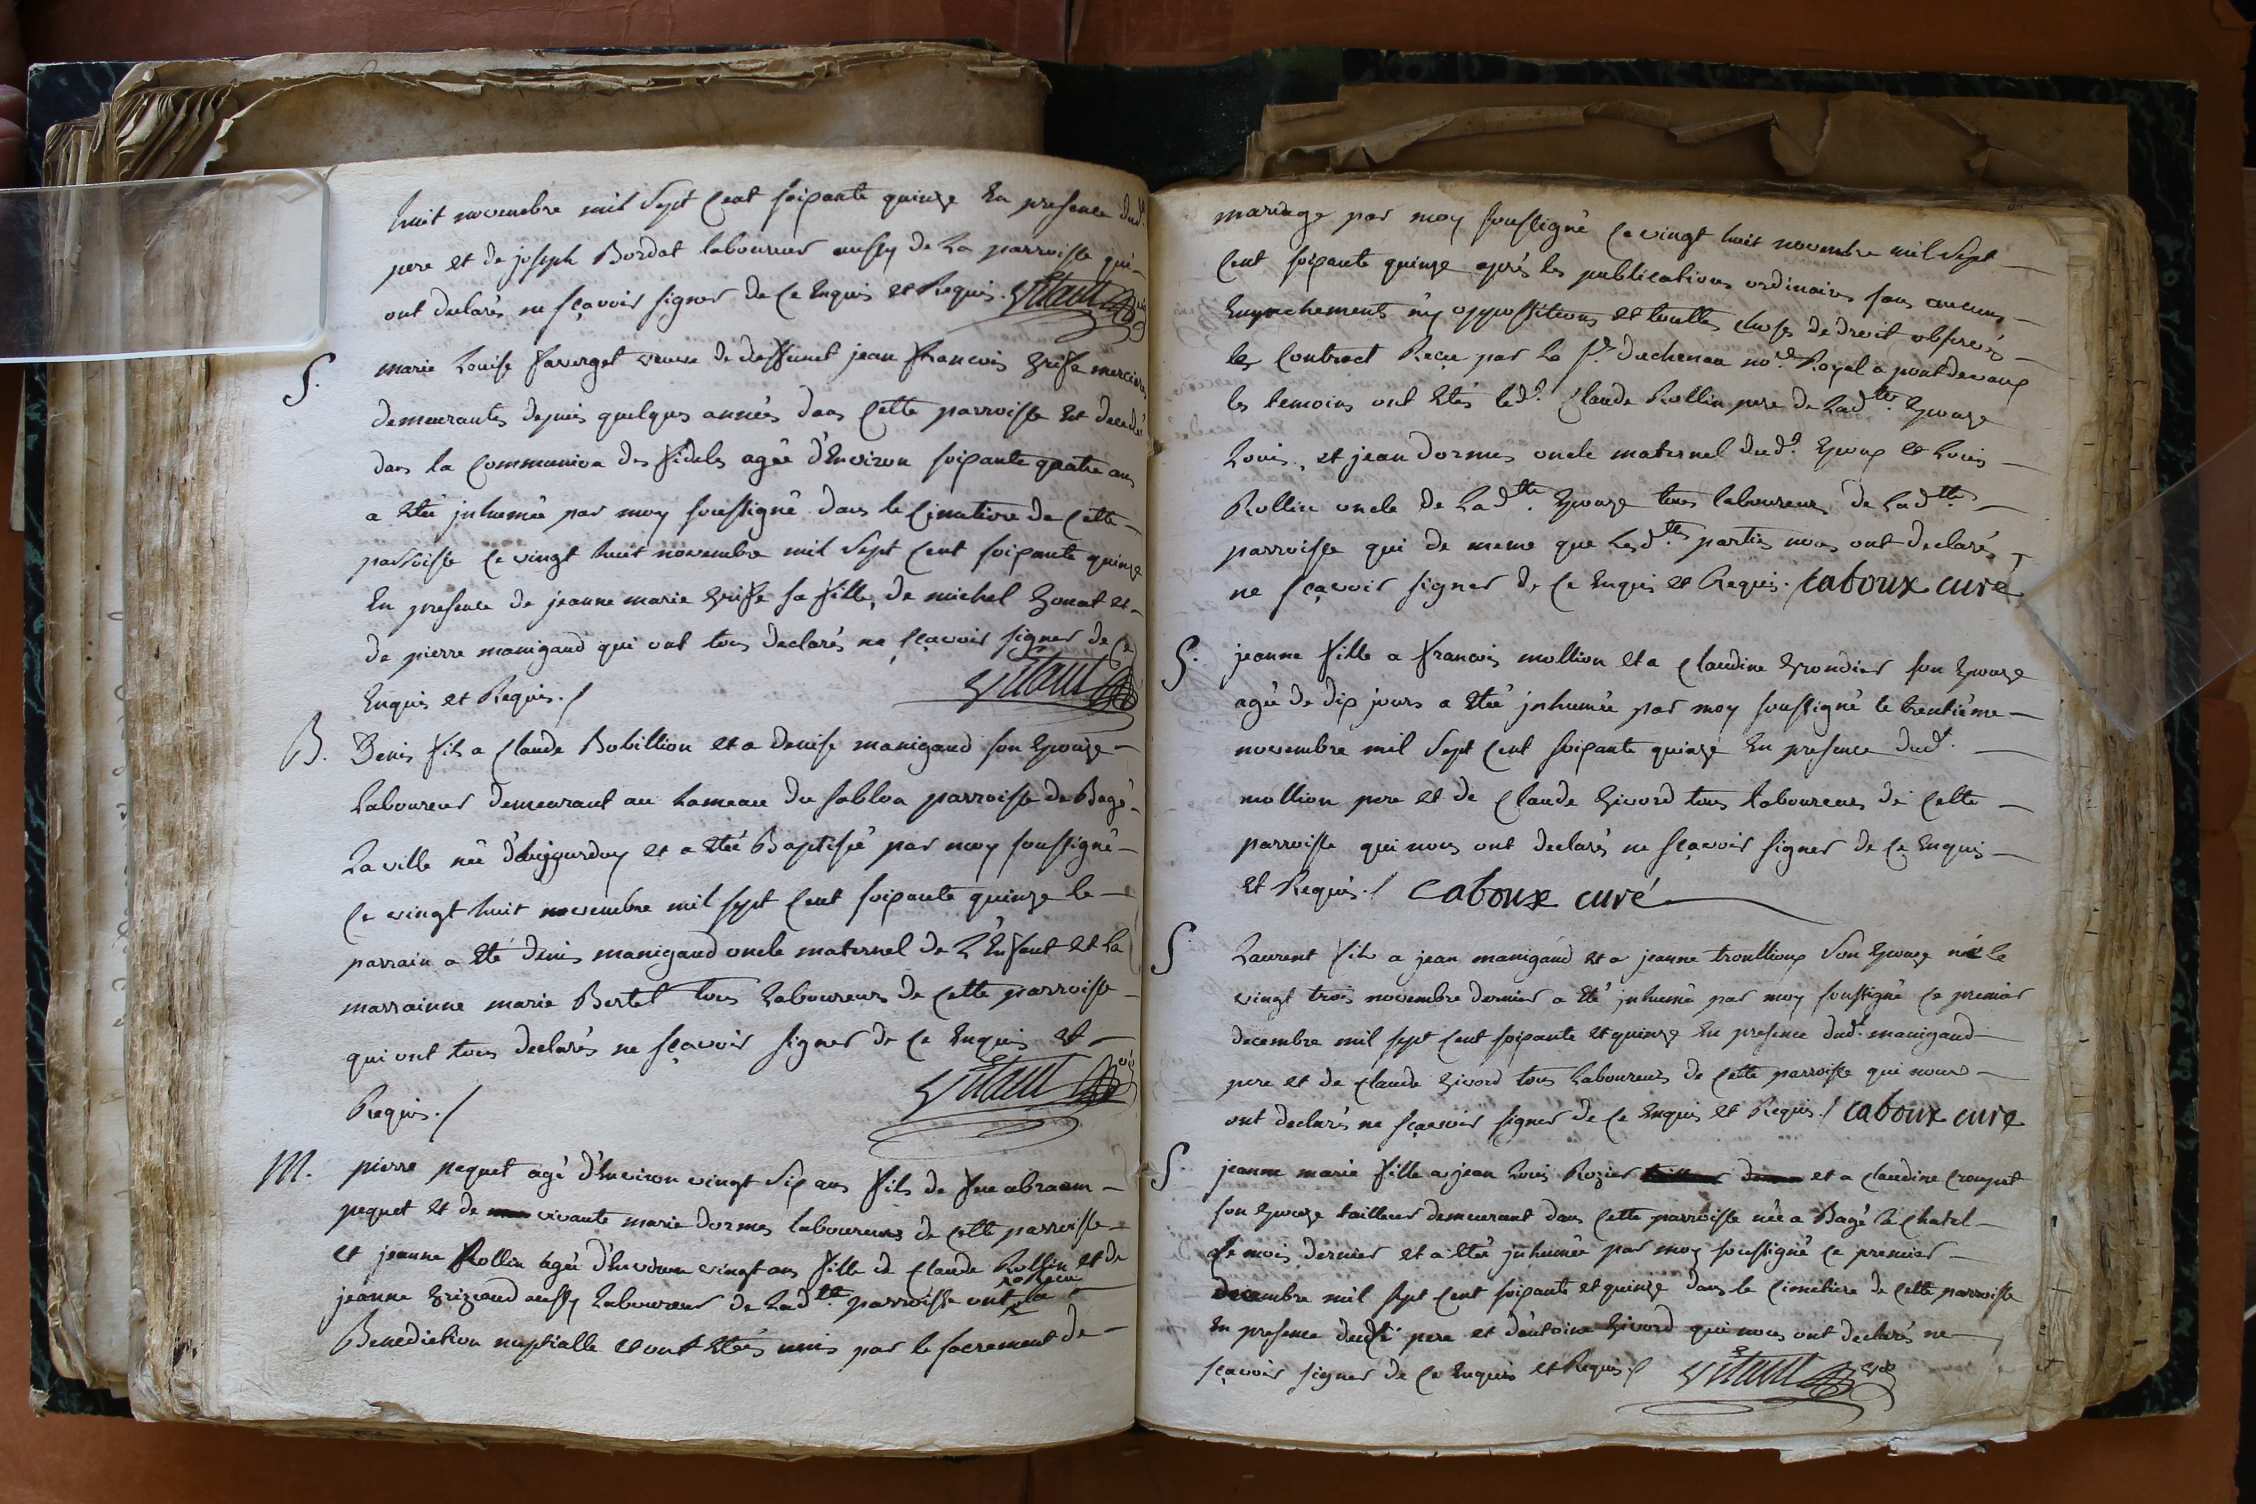 huit novembre mil Sept Cent soixante quinze En presence dud.t
pere et de joseph Bordat laboureur aussy de La parroisse qui
ont declarés ne sçavoir signer de Ce Enquis et Requis.
S. marie Louise faverget veuve de deffunct jean francois Griffe merciere
demeurante depuis quelques années dans Cette parroisse Est decedé
dans la Communion des fideles agée d'Environ soixante quatre ans
a Eté jnhumée par moy soussigné dans le Cimetiere de Cette
parroisse Ce vingt huit novembre mil Sept Cent soixante quinze
En presence de jeanne marie Griffe sa fille, de michel Gonat et
de pierre manigaud qui ont tous declarés ne sçavoir signer de Ce
Enquis et Requis./
B. Denis fils a Claude Bobillion et a denise manigaud son Epouze
Laboureur demeurant au hameau du sablon parroisse de Bagé
La ville né d'aujjourduy et a Eté Baptisé par moy soussigné
Ce vingt huit novembre mil sept Cent soixante quinze le
parrain a Eté denis manigaud oncle maternel de L'Enfant et La
marrainne marie Bertet tous Laboureurs de Cette parroisse
qui ont tous declarés ne sçavoir signer de Ce Enquis et
Requis./
M. pierre pequet agé d'Environ vingt Six ans fils de feu abraam
pequet et de vivante marie dormes laboureurs de Cette parroisse
et jeanne Rollin agée d'Environ vingt ans fille de Claude Rollin et de
jeanne aussy Laboureur de Lad.tte parroisse ont Reçu la
Benediction nuptialle et ont Etés unis par le sacrement de
mariage par moy soussigné Ce vingt huit novembre mil Sept
Cent soixante quinze après les publications ordinaires sans aucuns
Empechements ny oppositions et touttes choses de droit observés
le Contract Reçu par Le S.r duchenau no.re Royal a pontdevaux
les temoins ont Etés led.t Claude Rollin pere de Lad.tte Epouze
Louis, et jean dormes oncle maternel dud.t Epoux et Louis
Rollin oncle de Lad.tte Epouze tous laboureurs de Lad.tte
parroisse qui de meme que Lesd.ttes parties nous ont declarés
ne sçavoir signer de Ce Enquis et Requis. Caboux curé
S. jeanne fille a francois mollion et a Claudine Grondier son Epouze
agée de dix jours a Eté jnhumée par moy soussigné le trentième
novembre mil Sept Cent soixante quinze En presence dud.t
mollion pere et de Claude Givord tous laboureurs de Cette
parroisse qui nous ont declarés ne sçavoir signer de Ce Enquis
et Requis./ Caboux curé
S. Laurent fils a jean manigaud et a jeanne troullioux Son Epouze né le
vingt trois novembre dernier a Eté jnhumé par moy soussigné Ce premier
decembre mil sept Cent soixante et quinze En presence dud.t manigaud
pere et de Claude Givord tous Laboureurs de Cette parroisse qui nous
ont declarés ne sçavoir signer de Ce Enquis et Requis./ Caboux curé
S. jeanne marie fille a jean Louis Rozier et a Claudine Crouzet
son Epouze tailleur demeurant dans Cette parroisse née a Bagé le Chatel
Le mois dernier et a Eté jnhumée par moy soussigné Ce premier
decembre mil sept Cent soixante et quinze dans le Cimetiere de Cette parroisse
En presence dud.t pere et d'antoine Givord qui nous ont declarés ne
sçavoir signer de Ce Enquis et Requis./